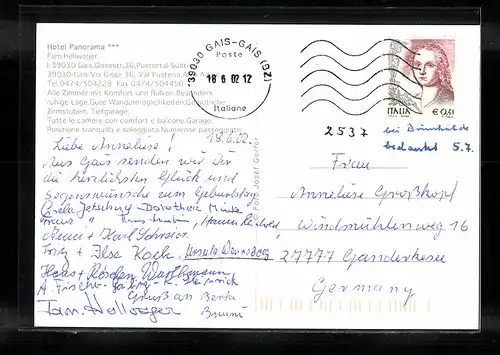 Hotel Panorama ***
Fam. Hellweger
I-39030 Gais, Gissestr. 36, Pustertal-Südtirol
39030-Gais Via Gisse 36, Val Pusteria Alto Adige
Tel. 0474/504228 Fax 0474/504450
Alle Zimmer mit Komfort und Balkon. Besonders
ruhige Lage. Gute Wandermöglichkeiten. Gemütliche
Zirmstuben, Tiefgarage.
Tutte le camere con comfort e balcone. Garage.
Posizione tranquilla e soleggiata. Numerose passeggiate.
39030 GAIS-GAIS (BZ)
Poste
18 6 02 12
Italiane
ITALIA
€ 0,41
2537
bei Brunhilde
bedankt 5.7.
18.6.02.
Liebe Anneliese!
Aus Gais senden wir Dir
die herzlichsten Glück und
Segenswünsche zum Geburtstag
Dorothea
Franz "
+ Karl
Fritz + Ilse Koch, Ursula
Hans + Röschen
A. Fischer
Gruß an
Fam. Hellweger
© Foto Josef
Frau
Anneliese Großkopf
Windmühlenweg 16
27777 Ganderkesee
Germany